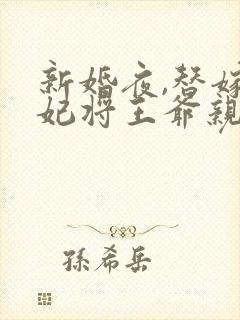 新婚夜,替嫁
妃将王爷亲
孫希岳